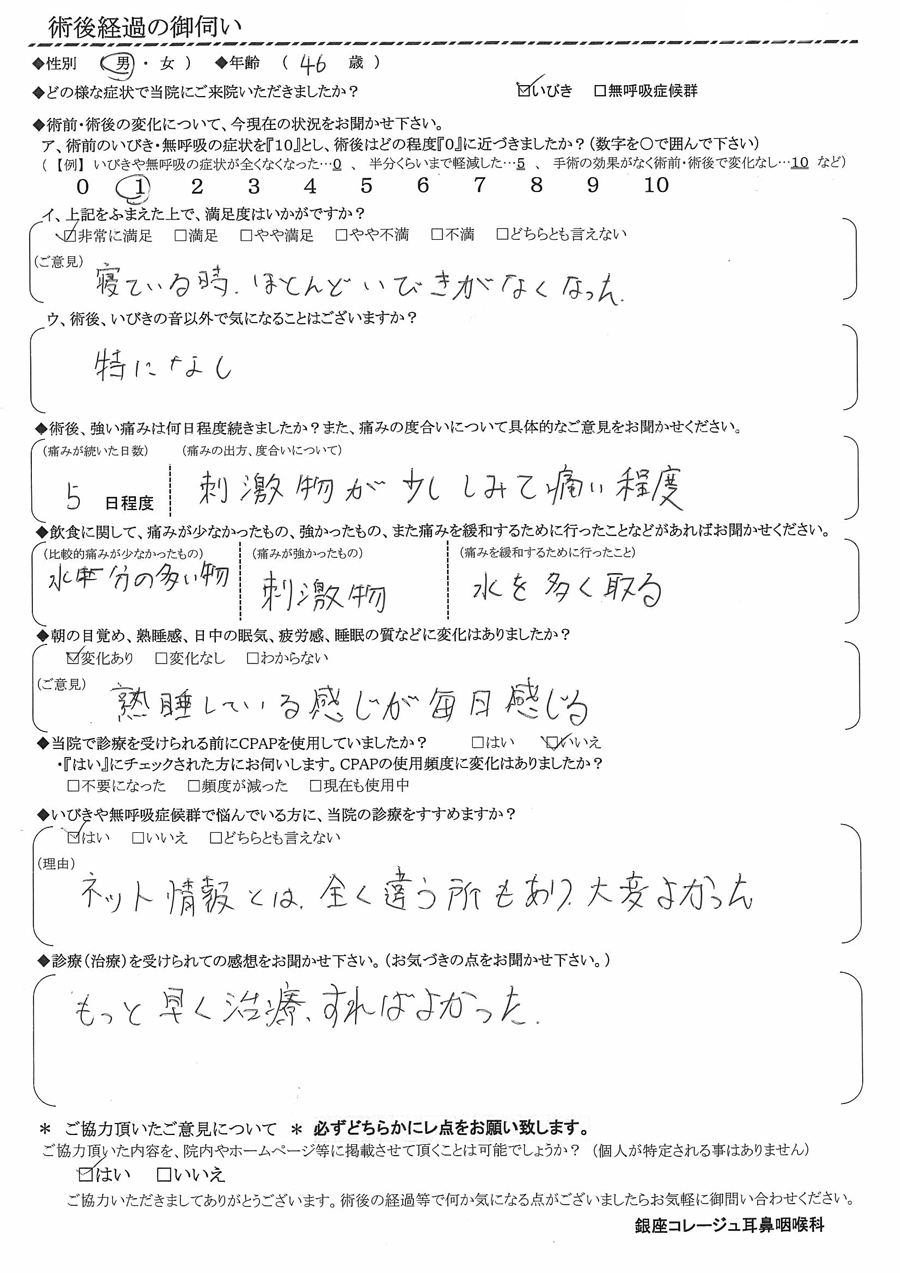 術後経過の御伺い
◆性別 （男・女） ◆年齢 （ 46 歳 ）
◆どの様な症状で当院にご来院いただきましたか？ ☑いびき □無呼吸症候群
◆術前・術後の変化について、今現在の状況をお聞かせ下さい。
ア、術前のいびき・無呼吸の症状を『10』とし、術後はどの程度『0』に近づきましたか？（数字を○で囲んで下さい）
（【例】 いびきや無呼吸の症状が全くなくなった…0 、 半分くらいまで軽減した…5 、 手術の効果がなく術前・術後で変化なし…10 など）
0 1 2 3 4 5 6 7 8 9 10
イ、上記をふまえた上で、満足度はいかがですか？
☑非常に満足 □満足 □やや満足 □やや不満 □不満 □どちらとも言えない
（ご意見）
寝ている時、ほとんどいびきがなくなった。
ウ、術後、いびきの音以外で気になることはございますか？
特になし
◆術後、強い痛みは何日程度続きましたか？また、痛みの度合いについて具体的なご意見をお聞かせください。
（痛みが続いた日数） （痛みの出方、度合いについて）
5 日程度 刺激物が少ししみて痛い程度
◆飲食に関して、痛みが少なかったもの、強かったもの、また痛みを緩和するために行ったことなどがあればお聞かせください。
（比較的痛みが少なかったもの） （痛みが強かったもの） （痛みを緩和するために行ったこと）
水分の多い物 刺激物 水を多く取る
◆朝の目覚め、熟睡感、日中の眠気、疲労感、睡眠の質などに変化はありましたか？
☑変化あり □変化なし □わからない
（ご意見）
熟睡している感じが毎日感じる
◆当院で診療を受けられる前にCPAPを使用していましたか？ □はい ☑いいえ
・『はい』にチェックされた方にお伺いします。CPAPの使用頻度に変化はありましたか？
□不要になった □頻度が減った □現在も使用中
◆いびきや無呼吸症候群で悩んでいる方に、当院の診療をすすめますか？
☑はい □いいえ □どちらとも言えない
（理由）
ネット情報とは、全く違う所もあり、大変よかった
◆診療（治療）を受けられての感想をお聞かせ下さい。（お気づきの点をお聞かせ下さい。）
もっと早く治療、すればよかった。
＊ ご協力頂いたご意見について ＊ 必ずどちらかにレ点をお願い致します。
ご協力頂いた内容を、院内やホームページ等に掲載させて頂くことは可能でしょうか？ （個人が特定される事はありません）
☑はい □いいえ
ご協力いただきましてありがとうございます。術後の経過等で何か気になる点がございましたらお気軽に御問い合わせください。
銀座コレージュ耳鼻咽喉科